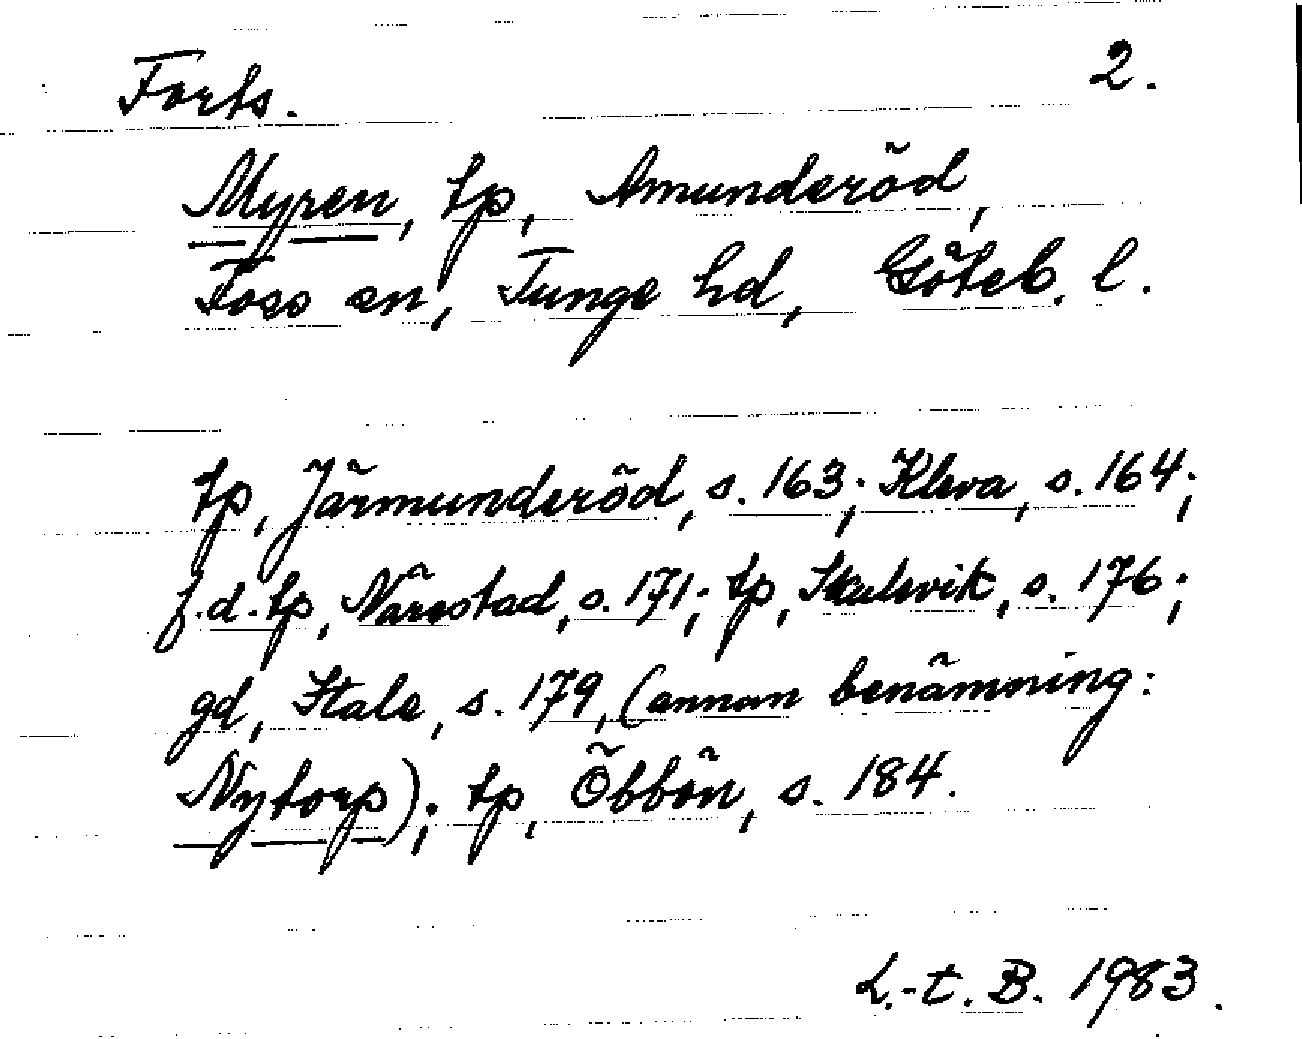 Forts. 2.
Myren, tp, Amunderöd,
Foss sn, Tunge hd, Göteb. l.
tp, Järmunderöd, s. 163; Kleva, s. 164;
f.d. tp, Närestad, s. 171; tp, Skulevik, s. 176;
gd, Stale, s. 179, (annan benämning:
Nytorp); tp, Öbbön, s. 184.
L.-t. B. 1983.